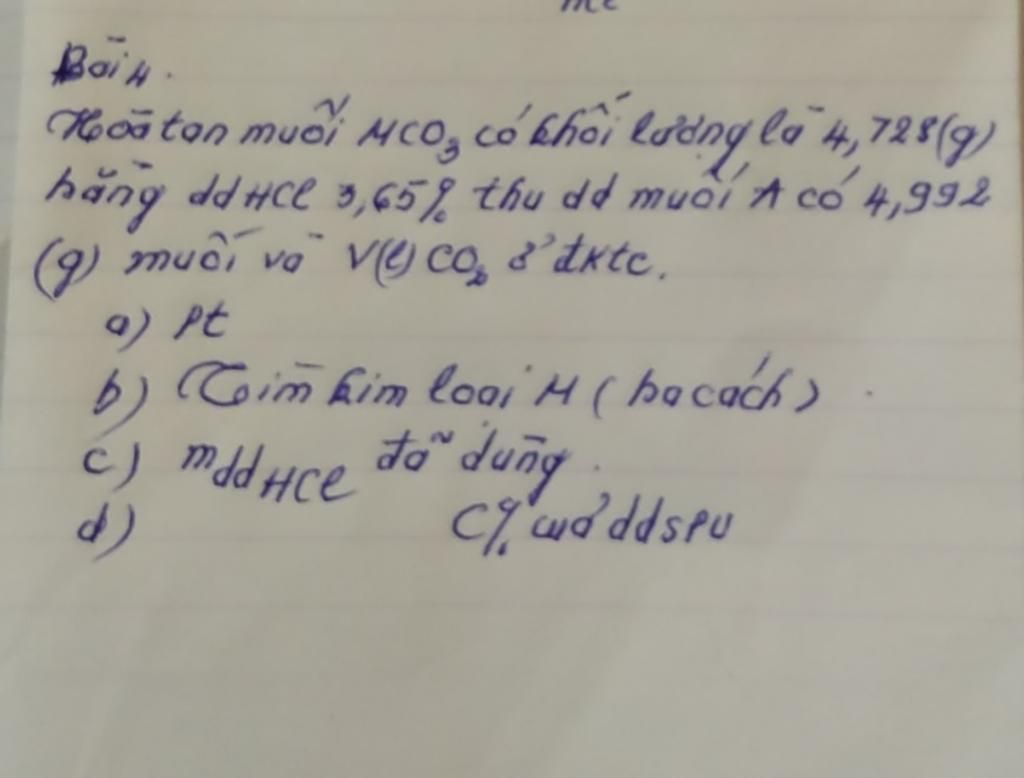 Bài 4.
Hoà tan muối MCO3 có khối lượng là 4,728(g)
bằng dd HCl 3,65% thu dd muối A có 4,992
(g) muối và V(l) CO2 ở đktc.
a) Pt
b) Tìm kim loại M (ba cách)
c) mdd HCl đã dùng.
d) C% của ddspu